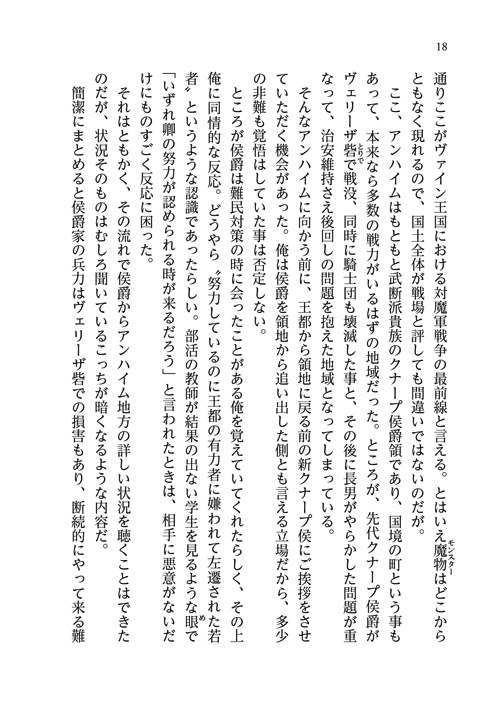 18
通りここがヴァイン王国における対魔軍戦争の最前線と言える。とはいえ魔物はどこから
モンスター
ともなく現れるので、国土全体が戦場と評しても間違いではないのだが。
ここ、アンハイムはもともと武断派貴族のクナープ侯爵領であり、国境の町という事も
あって、本来なら多数の戦力がいるはずの地域だった。ところが、先代クナープ侯爵が
ヴェリーザ砦で戦没、同時に騎士団も壊滅した事と、その後に長男がやらかした問題が重
とりで
なって、治安維持さえ後回しの問題を抱えた地域となってしまっている。
そんなアンハイムに向かう前に、王都から領地に戻る前の新クナープ侯にご挨拶をさせ
ていただく機会があった。俺は侯爵を領地から追い出した側とも言える立場だから、多少
の非難も覚悟はしていた事は否定しない。
ところが侯爵は難民対策の時に会ったことがある俺を覚えていてくれたらしく、その上
俺に同情的な反応。どうやら〝努力しているのに王都の有力者に嫌われて左遷された若
者〟というような認識であったらしい。部活の教師が結果の出ない学生を見るような眼で
め
「いずれ卿の努力が認められる時が来るだろう」と言われたときは、相手に悪意がないだ
けにものすごく反応に困った。
それはともかく、その流れで侯爵からアンハイム地方の詳しい状況を聴くことはできた
のだが、状況そのものはむしろ聞いているこっちが暗くなるような内容だ。
簡潔にまとめると侯爵家の兵力はヴェリーザ砦での損害もあり、断続的にやって来る難